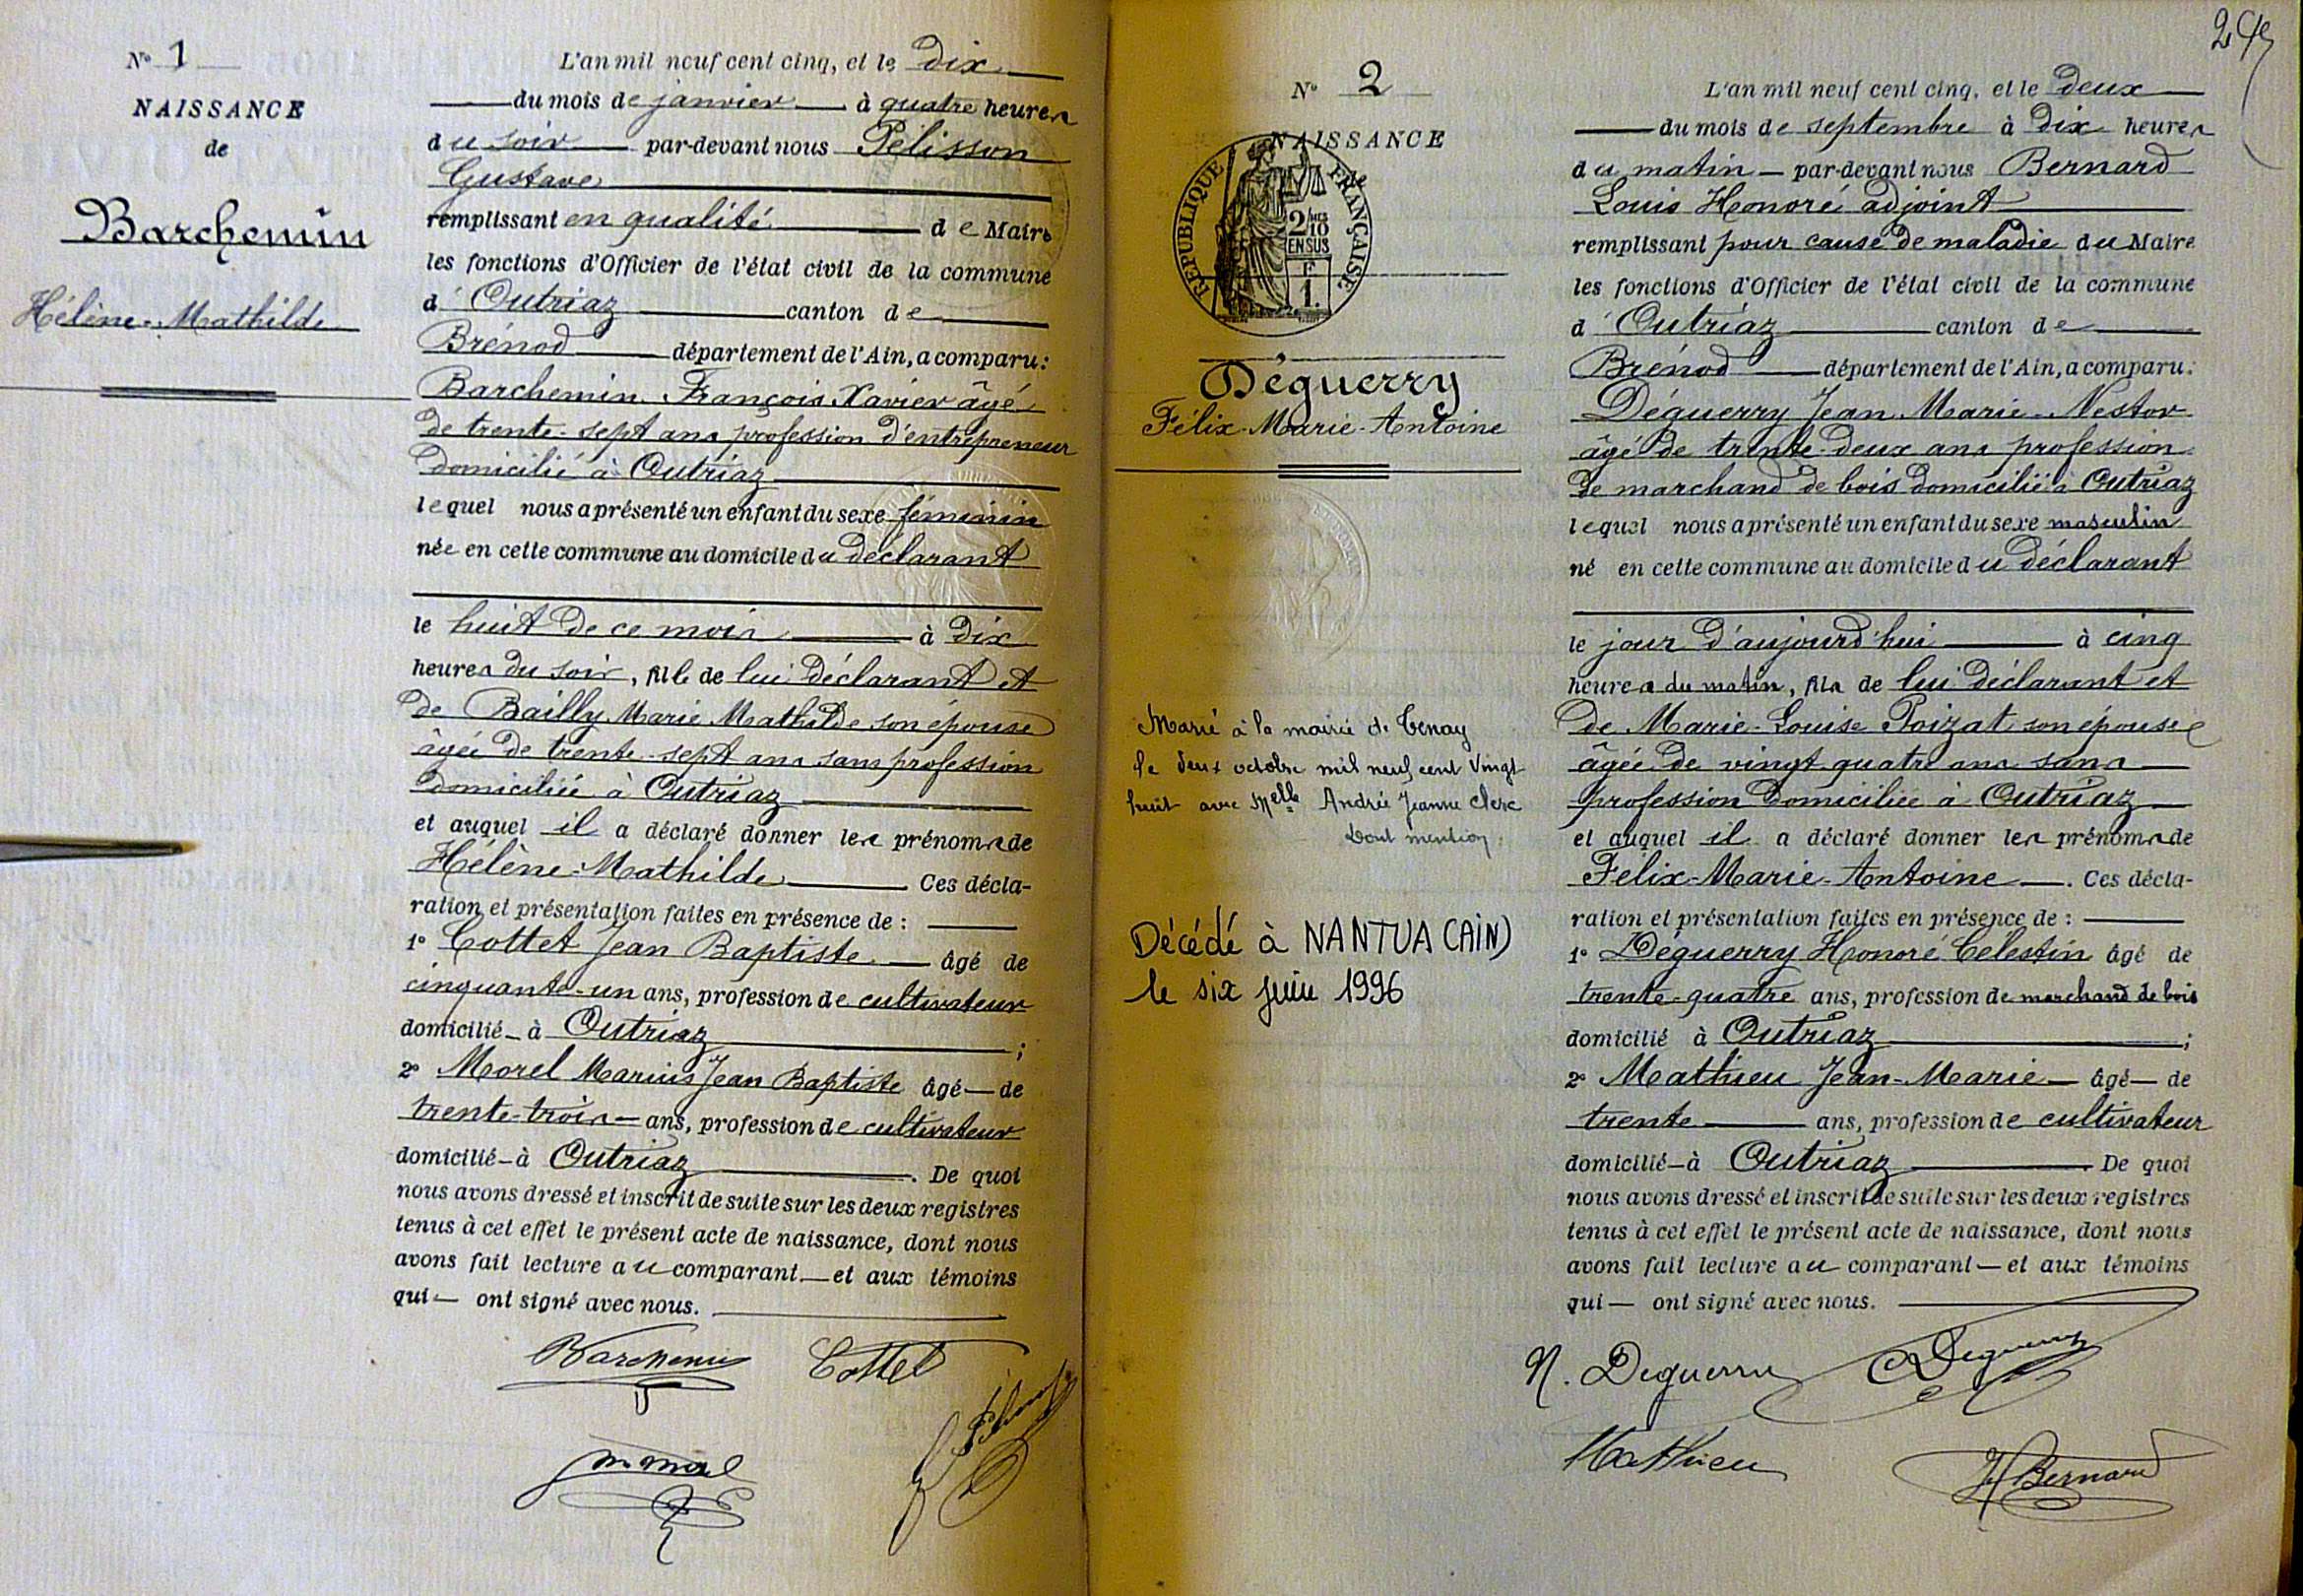 N° 1
NAISSANCE
de
Barchemin
Hélène-Mathilde
L'an mil neuf cent cinq, et le dix
du mois de janvier à quatre heures
du soir par-devant nous Pélisson
Gustave
remplissant en qualité de Maire
les fonctions d'Officier de l'état civil de la commune
d'Outriaz canton de
Brénod département de l'Ain, a comparu :
Barchemin François Xavier âgé
de trente-sept ans profession d'entrepreneur
domicilié à Outriaz
lequel nous a présenté un enfant du sexe féminin
née en cette commune au domicile du déclarant
le huit de ce mois à dix
heures du soir, fille de lui déclarant et
de Bailly Marie Mathilde son épouse
âgée de trente-sept ans sans profession
domiciliée à Outriaz
et auquel il a déclaré donner les prénoms de
Hélène-Mathilde Ces décla-
ration et présentation faites en présence de :
1° Cottet Jean Baptiste âgé de
cinquante-un ans, profession de cultivateur
domicilié à Outriaz ;
2° Morel Marius Jean Baptiste âgé de
trente-trois ans, profession de cultivateur
domicilié à Outriaz. De quoi
nous avons dressé et inscrit de suite sur les deux registres
tenus à cet effet le présent acte de naissance, dont nous
avons fait lecture au comparant et aux témoins
qui ont signé avec nous.
Barchemin Cottet
m morel
N° 2
NAISSANCE
de
RÉPUBLIQUE FRANÇAISE
2/10
EN SUS
F
1.
Déguerry
Félix-Marie-Antoine
Marié à la mairie de Tenay
le deux octobre mil neuf cent vingt
huit avec Melle Andrée Jeanne Clerc
Dont mention
Décédé à NANTUA (AIN)
le six juin 1996
L'an mil neuf cent cinq, et le deux
du mois de septembre à dix heures
du matin par-devant nous Bernard
Louis Honoré adjoint
remplissant pour cause de maladie du Maire
les fonctions d'Officier de l'état civil de la commune
d'Outriaz canton de
Brénod département de l'Ain, a comparu :
Déguerry Jean Marie-Nestor
âgé de trente-deux ans profession
de marchand de bois domicilié à Outriaz
lequel nous a présenté un enfant du sexe masculin
né en cette commune au domicile du déclarant
le jour d'aujourd'hui à cinq
heures du matin, fils de lui déclarant et
de Marie-Louise Poizat son épouse
âgée de vingt quatre ans sans
profession domiciliée à Outriaz
et auquel il a déclaré donner les prénoms de
Félix-Marie-Antoine. Ces décla-
ration et présentation faites en présence de :
1° Déguerry Honoré Célestin âgé de
trente-quatre ans, profession de marchand de bois
domicilié à Outriaz ;
2° Mathieu Jean-Marie âgé de
trente ans, profession de cultivateur
domicilié à Outriaz De quoi
nous avons dressé et inscrit de suite sur les deux registres
tenus à cet effet le présent acte de naissance, dont nous
avons fait lecture au comparant et aux témoins
qui ont signé avec nous.
N. Deguerry Deguerry
Mathieu H Bernard